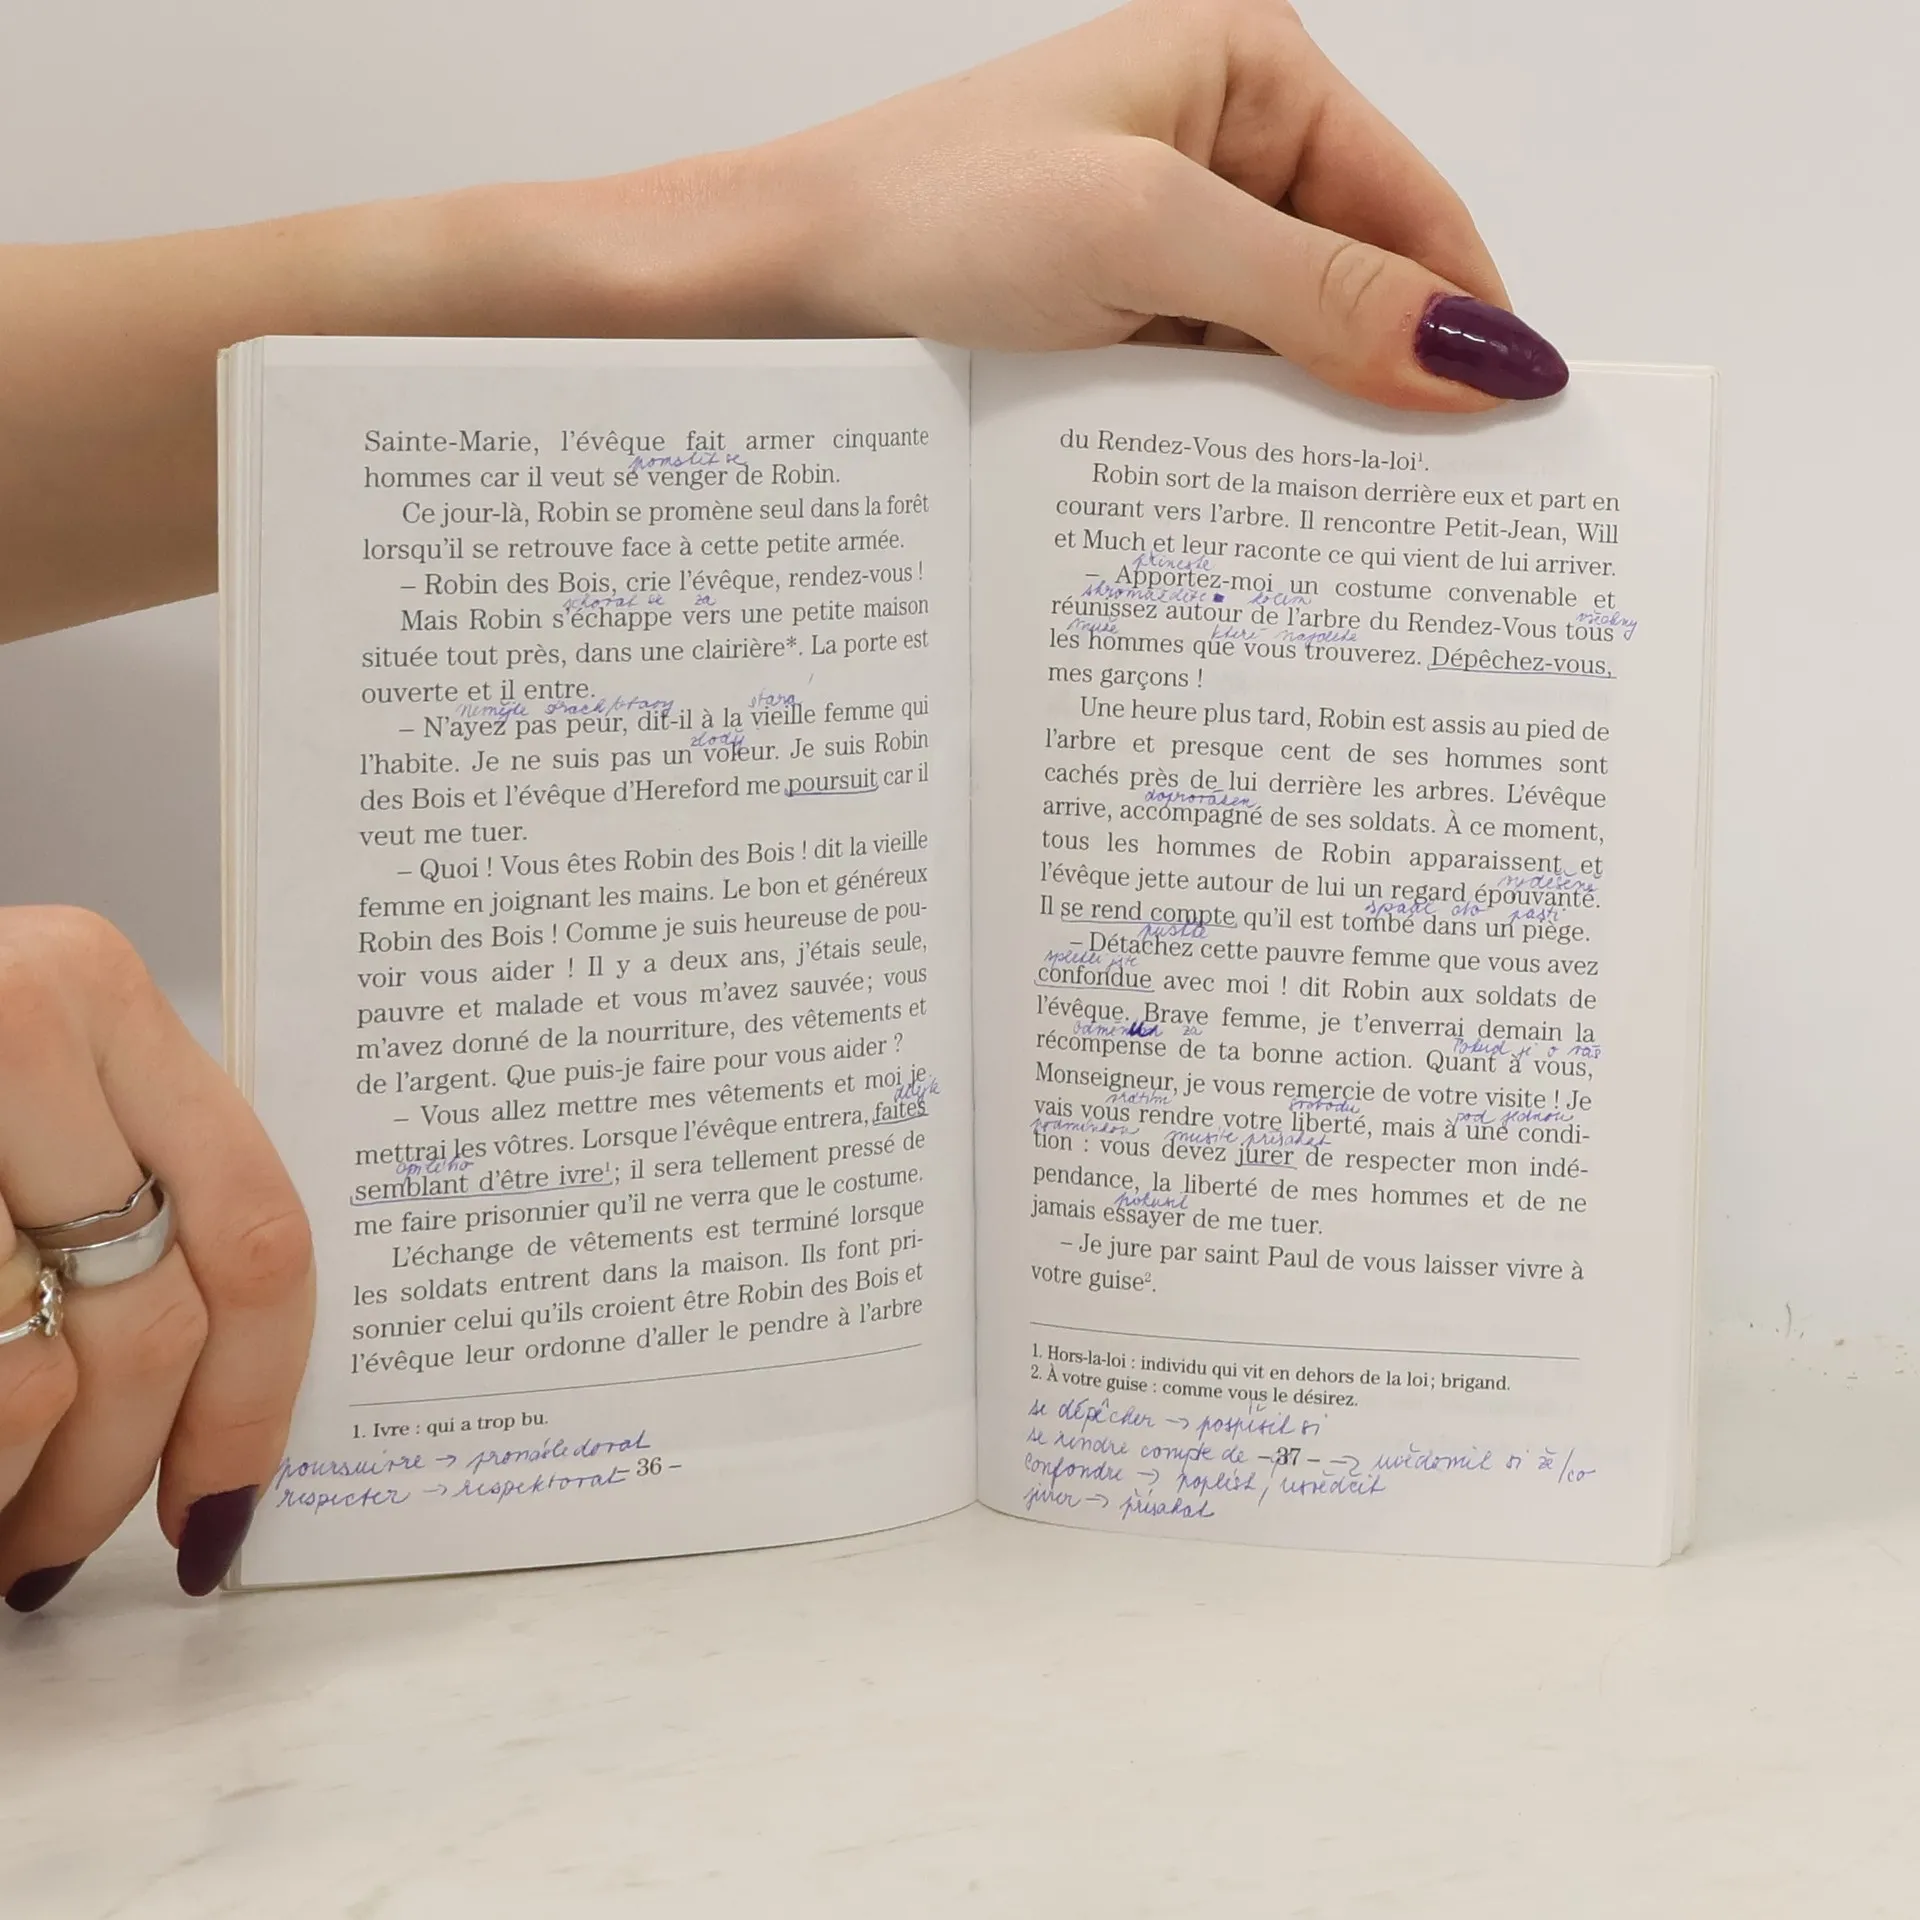 Sainte-Marie, l'évêque fait armer cinquante
pomstít se
hommes car il veut se venger de Robin.
Ce jour-là, Robin se promène seul dans la forêt
lorsqu'il se retrouve face à cette petite armée.
– Robin des Bois, crie l'évêque, rendez-vous !
schovat se za
Mais Robin s'échappe vers une petite maison
située tout près, dans une clairière*. La porte est
ouverte et il entre.
Nemějte strach/obavy stará
– N'ayez pas peur, dit-il à la vieille femme qui
zloděj
l'habite. Je ne suis pas un voleur. Je suis Robin
des Bois et l'évêque d'Hereford me poursuit car il
veut me tuer.
– Quoi ! Vous êtes Robin des Bois ! dit la vieille
femme en joignant les mains. Le bon et généreux
Robin des Bois ! Comme je suis heureuse de pou-
voir vous aider ! Il y a deux ans, j'étais seule,
pauvre et malade et vous m'avez sauvée; vous
m'avez donné de la nourriture, des vêtements et
de l'argent. Que puis-je faire pour vous aider ?
– Vous allez mettre mes vêtements et moi je
dělejte
mettrai les vôtres. Lorsque l'évêque entrera, faites
opilého
semblant d'être ivre¹; il sera tellement pressé de
me faire prisonnier qu'il ne verra que le costume.
L'échange de vêtements est terminé lorsque
les soldats entrent dans la maison. Ils font pri-
sonnier celui qu'ils croient être Robin des Bois et
l'évêque leur ordonne d'aller le pendre à l'arbre
1. Ivre : qui a trop bu.
poursuivre → pronásledovat
respecter → respektovat
– 36 –
du Rendez-Vous des hors-la-loi¹.
Robin sort de la maison derrière eux et part en
courant vers l'arbre. Il rencontre Petit-Jean, Will
et Much et leur raconte ce qui vient de lui arriver.
přineste
– Apportez-moi un costume convenable et
shromážděte kolem všechny
réunissez autour de l'arbre du Rendez-Vous tous
muže které najdete
les hommes que vous trouverez. Dépêchez-vous,
mes garçons !
Une heure plus tard, Robin est assis au pied de
l'arbre et presque cent de ses hommes sont
cachés près de lui derrière les arbres. L'évêque
doprovázen
arrive, accompagné de ses soldats. À ce moment,
tous les hommes de Robin apparaissent et
vyděšený
l'évêque jette autour de lui un regard épouvanté.
spadl do pasti
Il se rend compte qu'il est tombé dans un piège.
pusťte
– Détachez cette pauvre femme que vous avez
spletli jste
confondue avec moi ! dit Robin aux soldats de
l'évêque. Brave femme, je t'enverrai demain la
za Pokud jde o vás
récompense de ta bonne action. Quant à vous,
Monseigneur, je vous remercie de votre visite ! Je
vrátím svobodu pod jednou
vais vous rendre votre liberté, mais à une condi-
podmínkou musíte přísahat
tion : vous devez jurer de respecter mon indé-
pendance, la liberté de mes hommes et de ne
pokusit
jamais essayer de me tuer.
– Je jure par saint Paul de vous laisser vivre à
votre guise².
1. Hors-la-loi : individu qui vit en dehors de la loi; brigand.
2. À votre guise : comme vous le désirez.
se dépêcher → pospíšit si
se rendre compte de → uvědomit si že/co
– 37 –
confondre → poplést,
jurer → přísahat